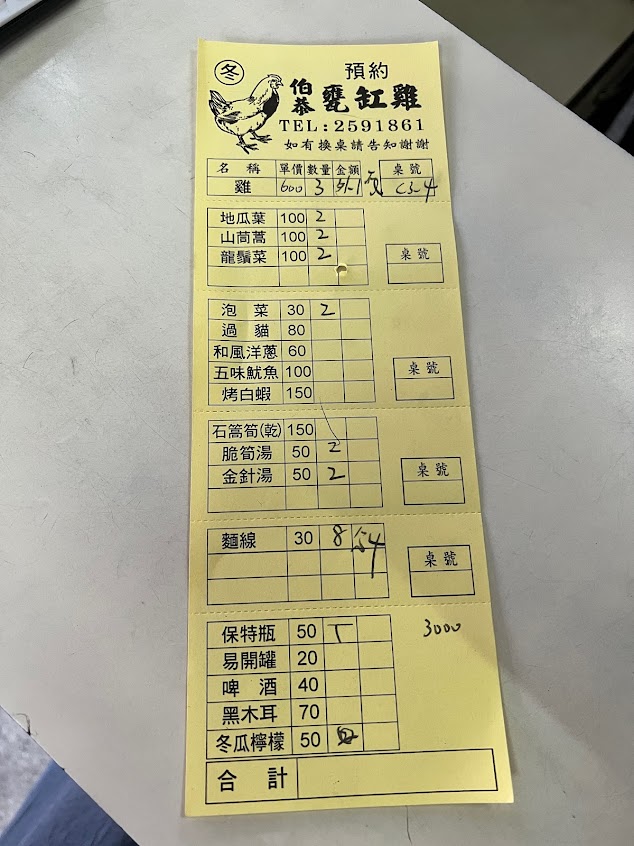 冬 預約
伯恭甕缸雞
TEL:2591861
如有換桌請告知謝謝
名 稱 單價 數量 金額 桌號
雞 600 3 C3-4
地瓜葉 100 2
山茼蒿 100 2
龍鬚菜 100 2
桌號
泡 菜 30 2
過 貓 80
和風洋蔥 60
五味魷魚 100
烤白蝦 150
桌號
石篙筍(乾) 150
脆筍湯 50 2
金針湯 50 2
桌號
麵線 30 8
桌號
保特瓶 50 3000
易開罐 20
啤 酒 40
黑木耳 70
冬瓜檸檬 50
合 計